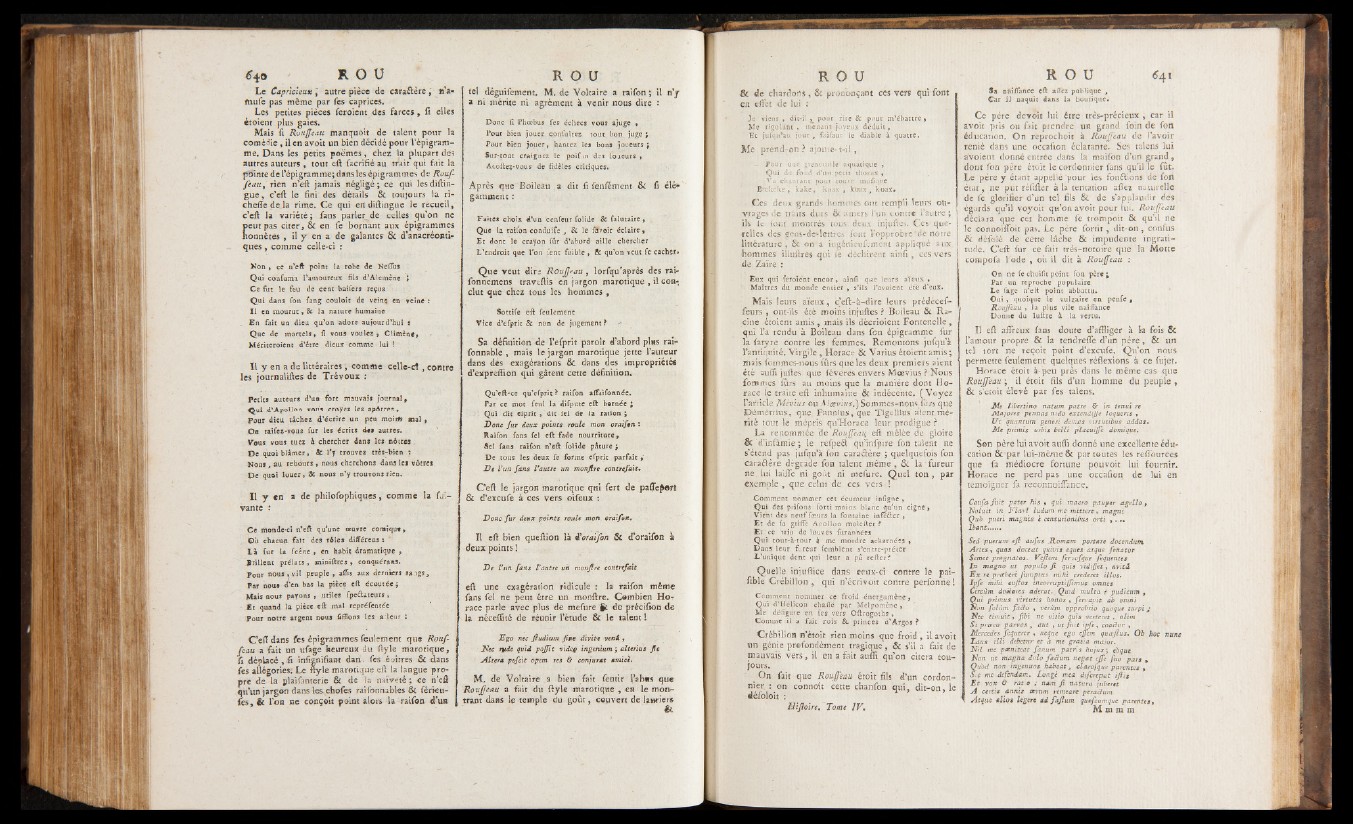 640 ROU
Le Capricieux, autre pièce de caractère, n'a-
muse pas même par ses caprices.
Les petites pièces seroient des farces, si elles
étoient plus gaies.
Mais si Rousseau manquoit de talent pour la
comédie, il en avoit un bien décidé pour l'épigram-
me. Dans les petits poëmes, chez la plupart des
autres auteurs, tout est sacrifié au trait qui fait la
pointe de l'épigramme; dans les épigrammes de Rous-
seau, rien n'est jamais négligé; ce qui les distin-
gue, c'est le fini des détails & toujours la ri-
chesse de la rime. Ce qui en distingue le recueil,
c'est la variété; sans parler de celles qu'on ne
peut pas citer, & en se bornant aux épigrammes
honnêtes, il y en a de galantes & d'anacréonti-
ques, comme celle-ci :
Non, ce n'est point la robe de Nessus
Qui consuma l'amoureux fils d'Alcmène ;
Ce fut le feu de cent baisers reçus
Qui dans son sang couloit de veine en veine :
Il en mourut, & la nature humaine
En fait un dieu qu'on adore aujourd'hui :
Que de mortels, si vous voulez, Climène,
Mériteroient d'être dieux comme lui !
Il y en a de littéraires, comme celle-ci, contre
les journalistes de Trévoux :
Petits auteurs d'un fort mauvais journal,
Qui d'Apollon vous croyez les apôtres,
Pour dieu tâchez d'écrire un peu moins mal,
Ou taisez-vous sur les écrits des autres.
Vous vous tuez à chercher dans les nôtres
De quoi blâmer, & l'y trouvez très-bien :
Nous, au rebours, nous cherchons dans les vôtres
De quoi louer, & nous n'y trouvons rien.
Il y en a de philosophiques, comme la sui-
vante :
Ce monde-ci n'est qu'une œuvre comique,
Où chacun fait des rôles différens :
Là sur la scène, en habit dramatique,
Brillent prélats, ministres, conquérans.
Pour nous, vil peuple, assis aux derniers rangs,
Par nous d'en bas la pièce est écoutée;
Mais nous payons, utiles spectateurs,
Et quand la pièce est mal représentée
Pour notre argent nous sifflons les acteurs :
C'est dans ses épigrammes seulement que Rous-
seau a fait un usage heureux du style marotique,
si déplacé, si insignifiant dans ses épîtres & dans
ses allégories. Le style marotique est la langue pro-
pre de la plaisanterie & de la naïveté; ce n'est
qu'un jargon dans les choses raisonnables & sérieu-
ses, & l'on ne conçoit point alors la raison d'un
ROU
tel déguisement. M. de Voltaire a raison; il n'y
a ni mérite ni agrément à venir nous dire :
Donc si Phœbus ses échecs vous ajuge,
Pour bien jouer consultez tout bon juge;
Pour bien jouer, hantez les bons joueurs ;
Sur-tout craignez le poison des loueurs,
Acostez-vous de fidèles critiques.
Après que Boileau a dit si sensément & si élé-
gamment :
Faites choix d'un censeur solide & salutaire,
Que la raison conduise, & le savoir éclaire,
Et dont le crayon sûr d'abord aille chercher
L'endroit que l'on sent foible, & qu'on veut se cacher.
Que veut dire Rousseau, lorsqu'après des rai-
sonnemens travestis en jargon marotique, il con-
clut que chez tous les hommes,
Sottise est seulement
Vice d'esprit & non de jugement ?
Sa définition de l'esprit paroît d'abord plus rai-
sonnable, mais le jargon marotique jette l'auteur
dans des exagérations & dans des impropriétés
d'expression qui gâtent cette définition.
Qu'est-ce qu'esprit ? raison assaisonnée.
Par ce mot seul la dispute est bornée ;
Qui dit esprit, dit sel de la raison ;
Donc sur deux points roule mon oraison :
Raison sans sel est fade nourriture,
Sel sans raison n'est solide pâture ;
De tous les deux se forme esprit parfait,
De l'un sans l'autre un monstre contrefait.
C'est le jargon marotique qui sert de passeport
& d'excuse à ces vers oiseux :
Donc sur deux points roule mon oraison.
Il est bien question là d'oraison & d'oraison à
deux points !
De l'un sans l'autre un monstre contrefait
est une exagération ridicule : la raison même
sans sel ne peut être un monstre. Combien Ho-
race parle avec plus de mesure & de précision de
la nécessité de réunir l'étude & le talent !
Ego nec studium sine divite venâ,
Nec rude quid possit video ingenium ; alterius sic
Altera poscit opem res & conjurat amicè.
M. de Voltaire a bien fait sentir l'abus que
Rousseau a fait du style marotique, en le mon-
trant dans le temple du goût, couvert de lauriers
&
ROU
& de chardons, & prononçant ces vers qui sont
en effet de lui :
Je viens, dit-il, pour rire & pour m'ébattre,
Me rigolant, menant joyeux déduit,
Et jusqu'au jour, faisant le diable à quatre.
Me prend-on ? ajoute-t-il,
Pour une grenouille aquatique,
Qui du fond d'un petit thorax,
Va chantant pour toute musique
Brekeke, kake, koax, koax, koax.
Ces deux grands hommes ont rempli leurs ou-
vrages de traits durs & amers l'un contre l'autre;
ils se sont montrés tous deux injustes. Ces que-
relles des gens-de-lettres sont l'opprobre de notre
littérature, & on a ingénieusement appliqué aux
hommes illustres qui se déchirent ainsi, ces vers
de Zaïre :
Eux qui seroient encor, ainsi que leurs aïeux,
Maîtres du monde entier, s'ils l'avoient été d'eux.
Mais leurs aïeux, c'est-à-dire leurs prédéces-
seurs, ont-ils été moins injustes ? Boileau & Ra-
cine étoient amis, mais ils décrioient Fontenelle,
qui l'a rendu à Boileau dans son épigramme sur
la satyre contre les femmes. Remontons jusqu'à
l'antiquité. Virgile, Horace & Varius étoient amis;
mais sommes-nous sûrs que les deux premiers aient
été aussi justes que sévères envers Mœvius ? Nous
sommes sûrs au moins que la manière dont Ho-
race le traite est inhumaine & indécente. (Voyez
l'article Mévius ou Mœvius.) Sommes-nous sûrs que
Démétrius, que Fannius, que Tigellius aient mé-
rité tout le mépris qu'Horace leur prodigue ?
La renommée de Rousseau est mêlée de gloire
& d'infamie; le respect qu'inspire son talent ne
s'étend pas jusqu'à son caractère; quelquefois son
caractère dégrade son talent même, & la fureur
ne lui laisse ni goût ni mesure. Quel ton, par
exemple, que celui de ces vers !
Comment nommer cet écumeur insigne,
Qui des prisons sorti moins blanc qu'un cigne,
Vient des neuf sœurs la fontaine infecter,
Et de sa griffe Apollon molester ?
Et ce trio de louves surannées
Qui tour-à-tour à me mordre acharnées,
Dans leur fureur semblent s'entre-prêter
L'unique dent qui leur a pû rester ?
Quelle injustice dans ceux-ci contre le pai-
sible Crébillon, qui n'écrivoit contre personne !
Comment nommer ce froid énergumène,
Qui d'Hélicon chassé par Melpomène,
Me défigure en ses vers Ostrogoths,
Comme il a fait rois & princes d'Argos ?
Crébillon n'étoit rien moins que froid, il avoit
un génie profondément tragique, & s'il a fait de
mauvais vers, il en a fait aussi qu'on citera tou-
jours.
On sait que Rousseau étoit fils d'un cordon-
nier : on connoît cette chanson qui, dit-on, le
désoloit :
Histoire. Tome IV.
ROU 641
Sa naissance est assez publique,
Car il naquit dans la boutique.
Ce père devoit lui être très-précieux, car il
avoit pris ou fait prendre un grand soin de son
éducation. On reprochoit à Rousseau de l'avoir
renié dans une occasion éclatante. Ses talens lui
avoient donné entrée dans la maison d'un grand,
dont son père étoit le cordonnier sans qu'il le fût.
Le père y étant appellé pour les fonctions de son
état, ne put résister à la tentation assez naturelle
de se glorifier d'un tel fils & de s'applaudir des
égards qu'il voyoit qu'on avoit pour lui. Rousseau
déclara que cet homme se trompoit & qu'il ne
le connoissoit pas. Le père sortit, dit-on, confus
& désolé de cette lâche & impudente ingrati-
tude. C'est sur ce fait très-notoire que la Motte
composa l'ode, où il dit à Rousseau :
On ne se choisit point son père;
Par un reproche populaire
Le sage n'est point abbattu.
Oui, quoique le vulgaire en pense,
Rousseau, la plus vile naissance
Donne du lustre à la vertu.
Il est affreux sans doute d'affliger à la fois &
l'amour propre & la tendresse d'un père, & un
tel tort ne reçoit point d'excuse. Qu'on nous
permette seulement quelques réflexions à ce sujet.
Horace étoit à-peu près dans le même cas que
Rousseau ; il étoit fils d'un homme du peuple,
& s'étoit élevé par ses talens.
Me libertino natum patre & in tenui re
Majores pennas nido extendisse loqueris,
Ut quantum generi demas virtutibus addas.
Me primis urbis belli placuisse domique.
Son père lui avoit aussi donné une excellente édu-
cation & par lui-même & par toutes les ressources
que sa médiocre fortune pouvoit lui fournir.
Horace ne perd pas une occasion de lui en
témoigner sa reconnoissance.
Causa fuit pater his, qui macro pauper agello,
Noluit in Flavî ludum me mittere, magni
Quò pueri magnis è centurionibus orti, ...
Ibant......
Sed puerum est ausus Romam portare docendum
Artes, quas doceat quivis eques atque senator
Semet prognatos. Vestem servosque sequentes
In magno ut populo si quis vidisset, avitâ
Ex re præberi sumptus mihi crederet illos.
Ipse mihi custos incorruptissimus omnes
Circùm doctores aderat. Quid multa ? pudicum,
Qui primus virtutis honos, servavit ab omni
Non solùm facto, verùm opprobrio quoque turpi ;
Nec timuit, sibi ne vitio quis verteret, olim
Si præco parvas, aut, ut fuit ipse, coactor,
Mercedes sequerer, neque ego essem questus. Ob hoc nunc
Laus illi debetur et à me gratia major.
Nil me pœniteat sanum patris hujus, eòque
Non ut magna dolo factum negat esse suo pars,
Quòd non ingenuos habeat, clarosque parentes,
Sic me defendam. Longè mea discrepat istis
Et vox & ratio ; nam si natura juberet
A certis annis ævum remeare peractum
Atque alios legere ad fastum quoscumque parentes,
Mmmm